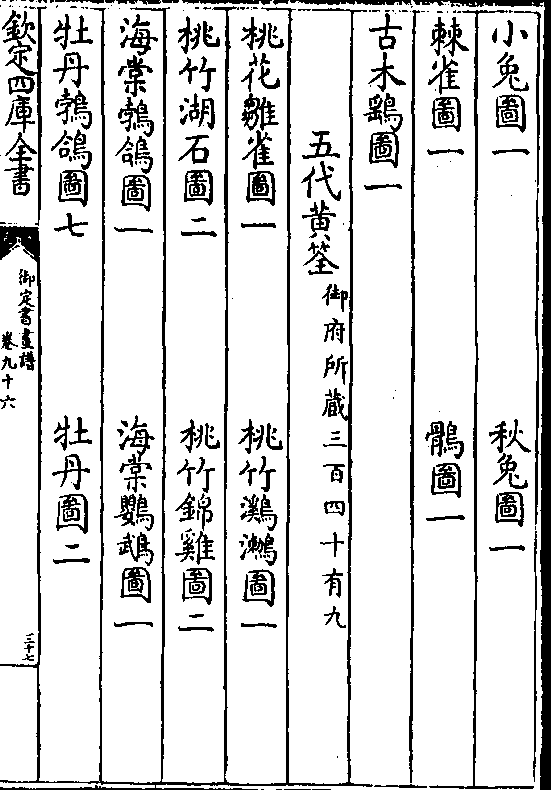 小兔圖一　秋兔圖一
棘雀圖一　鶻圖一
古木鷂圖一
五代黄筌 御府所藏三百四十有九
桃花雛雀圖一　桃竹鸂鶒圖一
桃竹湖石圖二　桃竹錦雞圖二
海棠鵓鴿圖一　海棠鸚鵡圖一
牡丹鵓鴿圖七　牡丹圖二
欽定四庫全書
御定書畫譜
卷九十六
三十七